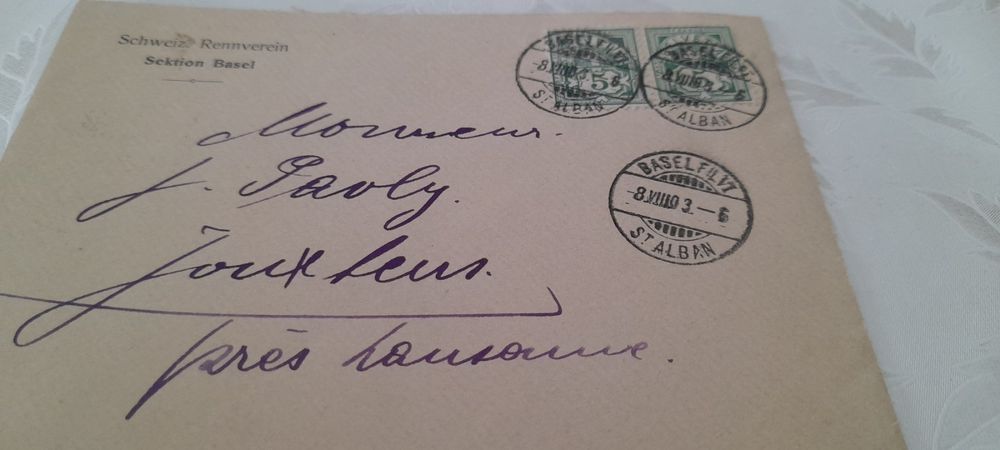 Schweiz. Rennverein
Sektion Basel
BASEL FIL. VI
-8.VIII.03.-6
ST ALBAN
5
BASEL FIL. VI
-8.VIII.03.-6
ST ALBAN
5
Monsieur.
J. Pavly.
Jouxtens.
près Lausanne.
BASEL FIL. VI
-8.VIII.03.-6
ST ALBAN